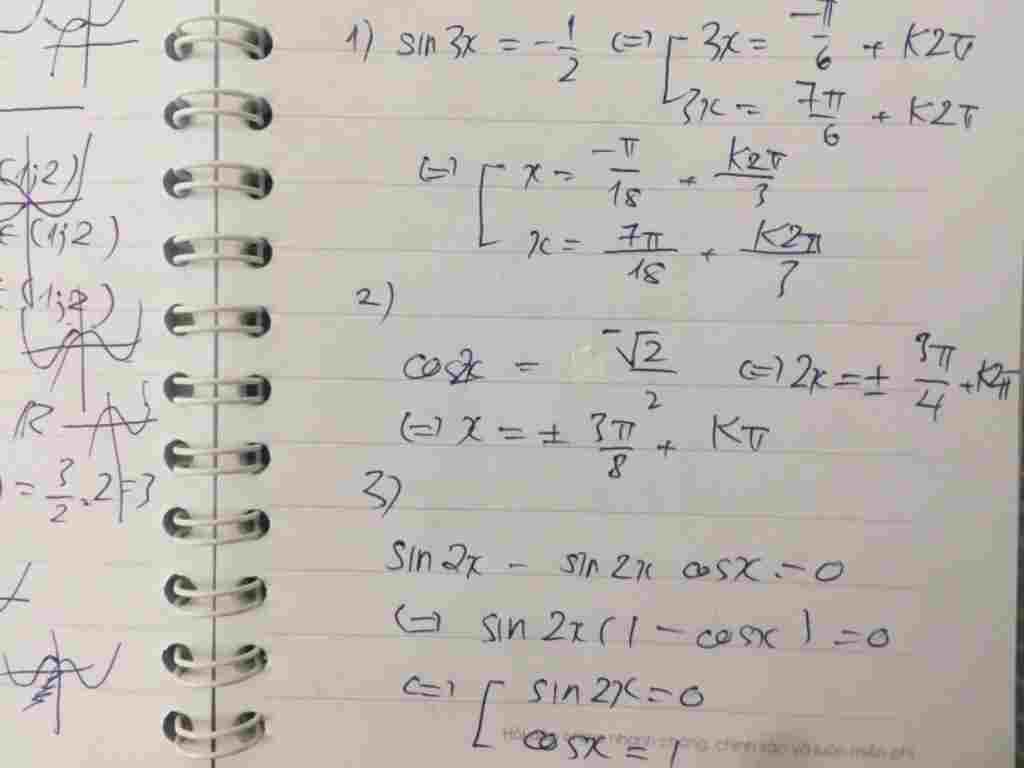 (1;2)
∈ (1;2)
∈ (1;2)
R
= 3/2 . 2 = 3
1) sin 3x = -1/2 <=> [ 3x = -π/6 + K2π
3x = 7π/6 + K2π
<=> [ x = -π/18 + K2π/3
x = 7π/18 + K2π/3
2)
cos2x = -√2/2 <=> 2x = ± 3π/4 + K2π
<=> x = ± 3π/8 + Kπ
3)
sin 2x - sin 2x cosx = 0
<=> sin 2x (1 - cosx) = 0
<=> [ sin 2x = 0
cosx = 1
nhanh chóng, chính xác và luôn miễn phí